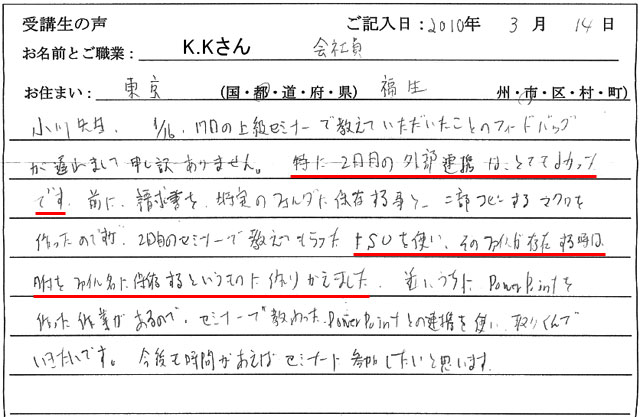 受講生の声 ご記入日：2010年 3月 14日
お名前とご職業： K.Kさん 会社員
お住まい： 東京 (国・都・道・府・県) 福生 州・市・区・村・町)
小川先生、1/16、17日の上級セミナーで教えていただいたことのフィードバッグ
が遅れまして申し訳ありません。特に2日目の外部連携はとてもよかった
です。前に、請求書を、特定のフォルダに保存する事と、二部コピーするマクロを
作ったのですが、2日目のセミナーで教えてもらったFSOを使い、そのファイルが存在する時は、
時をファイル名に保存するというものに作りかえました。近いうちにPowerPointを
作った作業があるので、セミナーで教わったPowerPointとの連携を使い、取りくんで
いきたいです。今後も時間があえばセミナーに参加したいと思います。